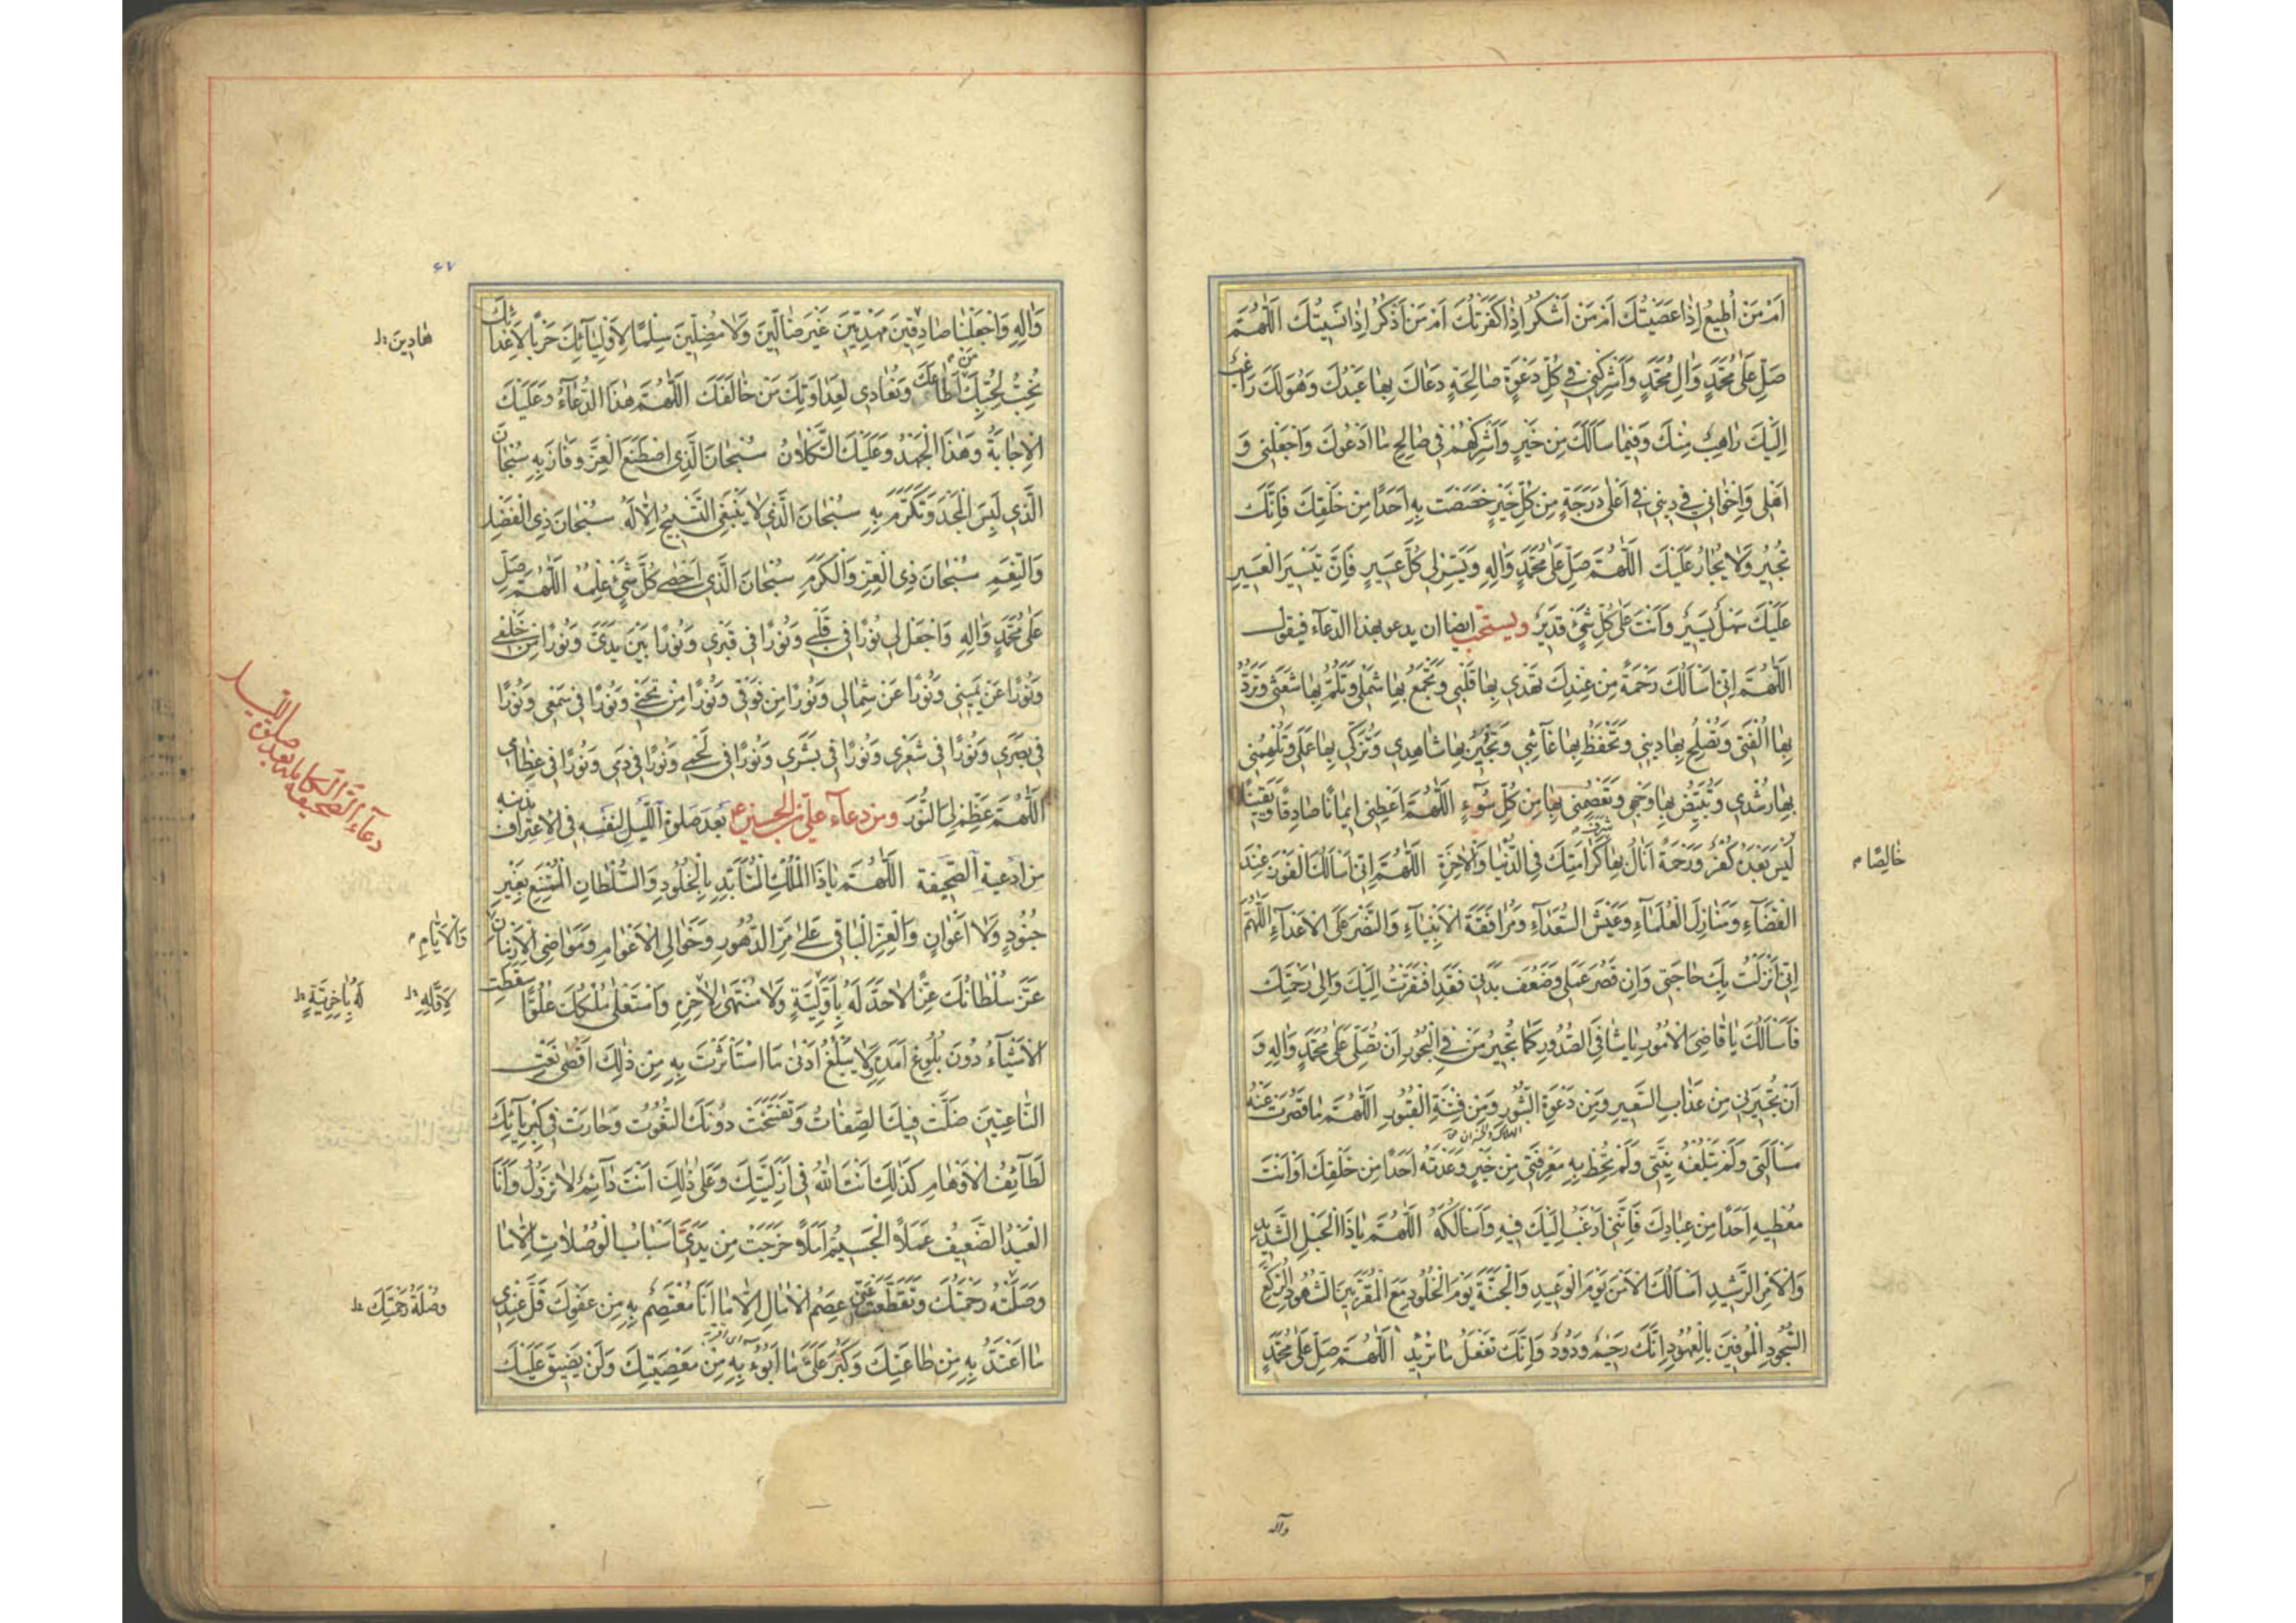 اَمْ مَنْ اُطِيعُ اِذَا عَصَيْتُكَ اَمْ مَنْ اَشْكُرُ اِذَا كَفَرْتُكَ اَمْ مَنْ اَذْكُرُ اِذَا نَسِيتُكَ اَللّٰهُمَّ
صَلِّ عَلٰى مُحَمَّدٍ وَاٰلِ مُحَمَّدٍ وَاَشْرِكْنِي فِي كُلِّ دَعْوَةٍ صَالِحَةٍ دَعَاكَ بِهَا عَبْدُكَ وَهُوَ لَكَ رَاغِبٌ
اِلَيْكَ رَاهِبٌ مِنْكَ وَفِيمَا سَاَلَكَ مِنْ خَيْرٍ وَاَشْرِكْهُمْ فِي صَالِحِ مَا اَدْعُوكَ وَاجْعَلْنِي وَ
اَهْلِي وَاِخْوَانِي فِي دِينِي فِي اَعْلٰى دَرَجَةٍ مِنْ كُلِّ خَيْرٍ خَصَصْتَ بِهِ اَحَدًا مِنْ خَلْقِكَ فَاِنَّكَ
تُجِيرُ وَلَا يُجَارُ عَلَيْكَ اَللّٰهُمَّ صَلِّ عَلٰى مُحَمَّدٍ وَاٰلِهِ وَيَسِّرْ لِي كُلَّ عَسِيرٍ فَاِنَّ تَيْسِيرَ الْعَسِيرِ
عَلَيْكَ سَهْلٌ يَسِيرٌ وَاَنْتَ عَلٰى كُلِّ شَيْءٍ قَدِيرٌ ويستحب ايضا ان يدعو بهذا الدعاء فيقول
اَللّٰهُمَّ اِنِّي اَسْاَلُكَ رَحْمَةً مِنْ عِنْدِكَ تَهْدِي بِهَا قَلْبِي وَتَجْمَعُ بِهَا شَمْلِي وَتَلُمُّ بِهَا شَعَثِي وَتَرُدُّ
بِهَا اُلْفَتِي وَتُصْلِحُ بِهَا دِينِي وَتَحْفَظُ بِهَا غَائِبِي وَتُجِيرُ بِهَا شَاهِدِي وَتُزَكِّي بِهَا عَمَلِي وَتُلْهِمُنِي
بِهَا رُشْدِي وَتُبَيِّضُ بِهَا وَجْهِي وَتَعْصِمُنِي بِهَا مِنْ كُلِّ سُوۤءٍ اَللّٰهُمَّ اَعْطِنِي اِيمَانًا صَادِقًا وَيَقِينًا
خَالِصًا
لَيْسَ بَعْدَهُ كُفْرٌ وَرَحْمَةً اَنَالُ بِهَا شَرَفَ كَرَامَتِكَ فِي الدُّنْيَا وَالْاٰخِرَةِ اَللّٰهُمَّ اِنِّي اَسْاَلُكَ الْفَوْزَ عِنْدَ
الْقَضَاۤءِ وَمَنَازِلَ الْعُلَمَاۤءِ وَعَيْشَ السُّعَدَاۤءِ وَمُرَافَقَةَ الْاَنْبِيَاۤءِ وَالنَّصْرَ عَلَى الْاَعْدَاۤءِ اَللّٰهُمَّ
اِنِّي اَنْزَلْتُ بِكَ حَاجَتِي وَاِنْ قَصُرَ عَمَلِي وَضَعُفَ بَدَنِي فَقَدِ افْتَقَرْتُ اِلَيْكَ وَاِلٰى رَحْمَتِكَ
فَاَسْاَلُكَ يَا قَاضِيَ الْاُمُورِ يَا شَافِيَ الصُّدُورِ كَمَا تُجِيرُ مَنْ فِي الْبُحُورِ اَنْ تُصَلِّيَ عَلٰى مُحَمَّدٍ وَاٰلِهِ وَ
اَنْ تُجِيرَنِي مِنْ عَذَابِ السَّعِيرِ وَمِنْ دَعْوَةِ الثُّبُورِ وَمِنْ فِتْنَةِ الْقُبُورِ اَللّٰهُمَّ مَا قَصُرَتْ عَنْهُ
مَسْاَلَتِي وَلَمْ تَبْلُغْهُ نِيَّتِي وَلَمْ تُحِطْ بِهِ مَعْرِفَتِي مِنْ خَيْرٍ وَعَدْتَهُ اَحَدًا مِنْ خَلْقِكَ اَوْ اَنْتَ
مُعْطِيهِ اَحَدًا مِنْ عِبَادِكَ فَاِنَّنِي اَرْغَبُ اِلَيْكَ فِيهِ وَاَسْاَلُكَهُ اَللّٰهُمَّ يَا ذَا الْحَبْلِ الشَّدِيدِ
وَالْاَمْرِ الرَّشِيدِ اَسْاَلُكَ الْاَمْنَ يَوْمَ الْوَعِيدِ وَالْجَنَّةَ يَوْمَ الْخُلُودِ مَعَ الْمُقَرَّبِينَ الشُّهُودِ الرُّكَّعِ
السُّجُودِ الْمُوفِينَ بِالْعُهُودِ اِنَّكَ رَحِيمٌ وَدُودٌ وَاِنَّكَ تَفْعَلُ مَا تُرِيدُ اَللّٰهُمَّ صَلِّ عَلٰى مُحَمَّدٍ
وآله
٤٧
وَاٰلِهِ وَاجْعَلْنَا صَادِقِينَ مَهْدِيِّينَ غَيْرَ ضَالِّينَ وَلَا مُضِلِّينَ سِلْمًا لِاَوْلِيَاۤئِكَ حَرْبًا لِاَعْدَائِكَ
هَادِينَ
نُحِبُّ لِحُبِّكَ مَنْ اَطَاعَكَ وَنُعَادِي لِعَدَاوَتِكَ مَنْ خَالَفَكَ اَللّٰهُمَّ هٰذَا الدُّعَاۤءُ وَعَلَيْكَ
الْاِجَابَةُ وَهٰذَا الْجَهْدُ وَعَلَيْكَ التُّكْلَانُ سُبْحَانَ الَّذِي اصْطَنَعَ الْعِزَّ وَفَازَ بِهِ سُبْحَانَ
الَّذِي لَبِسَ الْمَجْدَ وَتَكَرَّمَ بِهِ سُبْحَانَ الَّذِي لَا يَنْبَغِي التَّسْبِيحُ اِلَّا لَهُ سُبْحَانَ ذِي الْفَضْلِ
وَالنِّعَمِ سُبْحَانَ ذِي الْعِزِّ وَالْكَرَمِ سُبْحَانَ الَّذِي اَحْصٰى كُلَّ شَيْءٍ عِلْمُهُ اَللّٰهُمَّ صَلِّ
عَلٰى مُحَمَّدٍ وَاٰلِهِ وَاجْعَلْ لِي نُورًا فِي قَلْبِي وَنُورًا فِي قَبْرِي وَنُورًا بَيْنَ يَدَيَّ وَنُورًا مِنْ خَلْفِي
وَنُورًا عَنْ يَمِينِي وَنُورًا عَنْ شِمَالِي وَنُورًا مِنْ فَوْقِي وَنُورًا مِنْ تَحْتِي وَنُورًا فِي سَمْعِي وَنُورًا
فِي بَصَرِي وَنُورًا فِي شَعْرِي وَنُورًا فِي بَشَرِي وَنُورًا فِي لَحْمِي وَنُورًا فِي دَمِي وَنُورًا فِي عِظَامِي
اَللّٰهُمَّ عَظِّمْ لِيَ النُّورَ ومن دعاء علي بن الحسين ع بَعد صَلوة اللَّيل لنَفسِه فى الاعتراف بذنبه
دعاء الصحيفة الكاملة بعد صلوة الليل
من ادعية الصحيفة اَللّٰهُمَّ يَا ذَا الْمُلْكِ الْمُتَاَبِّدِ بِالْخُلُودِ وَالسُّلْطَانِ الْمُمْتَنِعِ بِغَيْرِ
جُنُودٍ وَلَا اَعْوَانٍ وَالْعِزِّ الْبَاقِي عَلٰى مَرِّ الدُّهُورِ وَخَوَالِي الْاَعْوَامِ وَمَوَاضِي الْاَزْمَانِ
وَالْاَيَّامِ
عَزَّ سُلْطَانُكَ عِزًّا لَا حَدَّ لَهُ بِاَوَّلِيَّةٍ وَلَا مُنْتَهٰى لِاٰخِرِهِ وَاسْتَعْلٰى مُلْكُكَ عُلُوًّا سَقَطَتِ
لِاَوَّلِهِ
لَهُ بِاٰخِرِيَّةٍ
الْاَشْيَاۤءُ دُونَ بُلُوغِ اَمَدِهِ وَلَا يَبْلُغُ اَدْنٰى مَا اسْتَاْثَرْتَ بِهِ مِنْ ذٰلِكَ اَقْصٰى نَعْتِ
النَّاعِتِينَ ضَلَّتْ فِيكَ الصِّفَاتُ وَتَفَسَّخَتْ دُونَكَ النُّعُوتُ وَحَارَتْ فِي كِبْرِيَاۤئِكَ
لَطَاۤئِفُ الْاَوْهَامِ كَذٰلِكَ اَنْتَ اللّٰهُ فِي اَزَلِيَّتِكَ وَعَلٰى ذٰلِكَ اَنْتَ دَاۤئِمٌ لَا تَزُولُ وَاَنَا
الْعَبْدُ الضَّعِيفُ عَمَلًا الْجَسِيمُ اَمَلًا خَرَجَتْ مِنْ يَدَيَّ اَسْبَابُ الْوُصُلَاتِ اِلَّا مَا
وَصَلَتْهُ رَحْمَتُكَ وَتَقَطَّعَتْ عَنِّي عِصَمُ الْاٰمَالِ اِلَّا مَا اَنَا مُعْتَصِمٌ بِهِ مِنْ عَفْوِكَ قَلَّ عِنْدِي
وُصْلَةُ رَحْمَتِكَ
مَا اَعْتَدُّ بِهِ مِنْ طَاعَتِكَ وَكَبُرَ عَلَيَّ مَا اَبُوۤءُ بِهِ مِنْ مَعْصِيَتِكَ وَلَنْ يَضِيقَ عَلَيْكَ